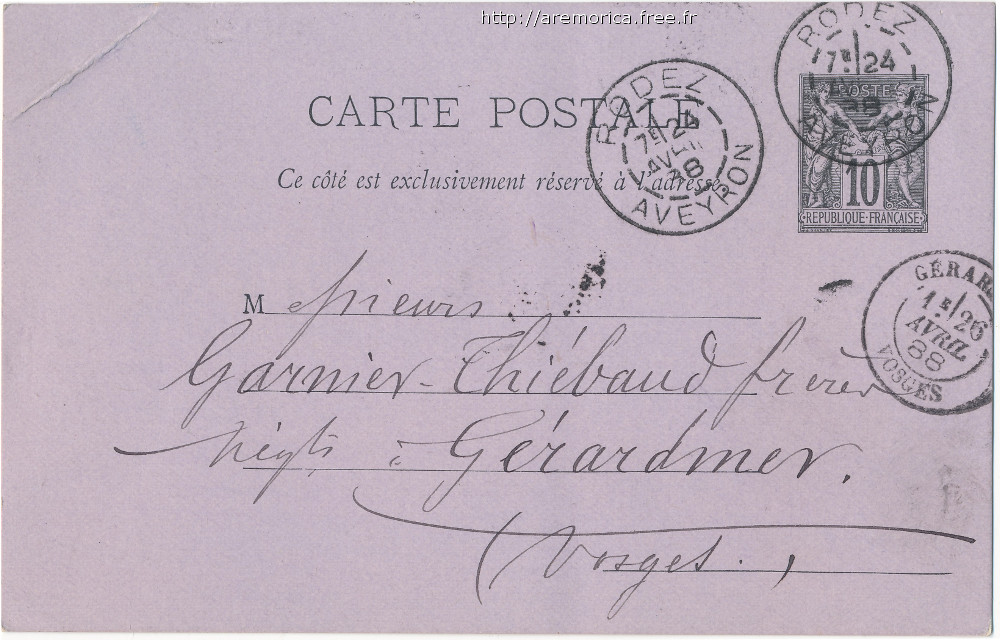 http://aremorica.free.fr
RODEZ
7E 24
AVRIL
88
AVEYRON
CARTE POSTALE
RODEZ
7E 24
AVRIL
88
AVEYRON
POSTES
10
REPUBLIQUE FRANÇAISE
Ce côté est exclusivement réservé à l'adresse.
GÉRAR
1E 26
AVRIL
88
VOSGES
Messieurs
Garnier-Thiébaud freres
Négts à Gérardmer.
(Vosges.)